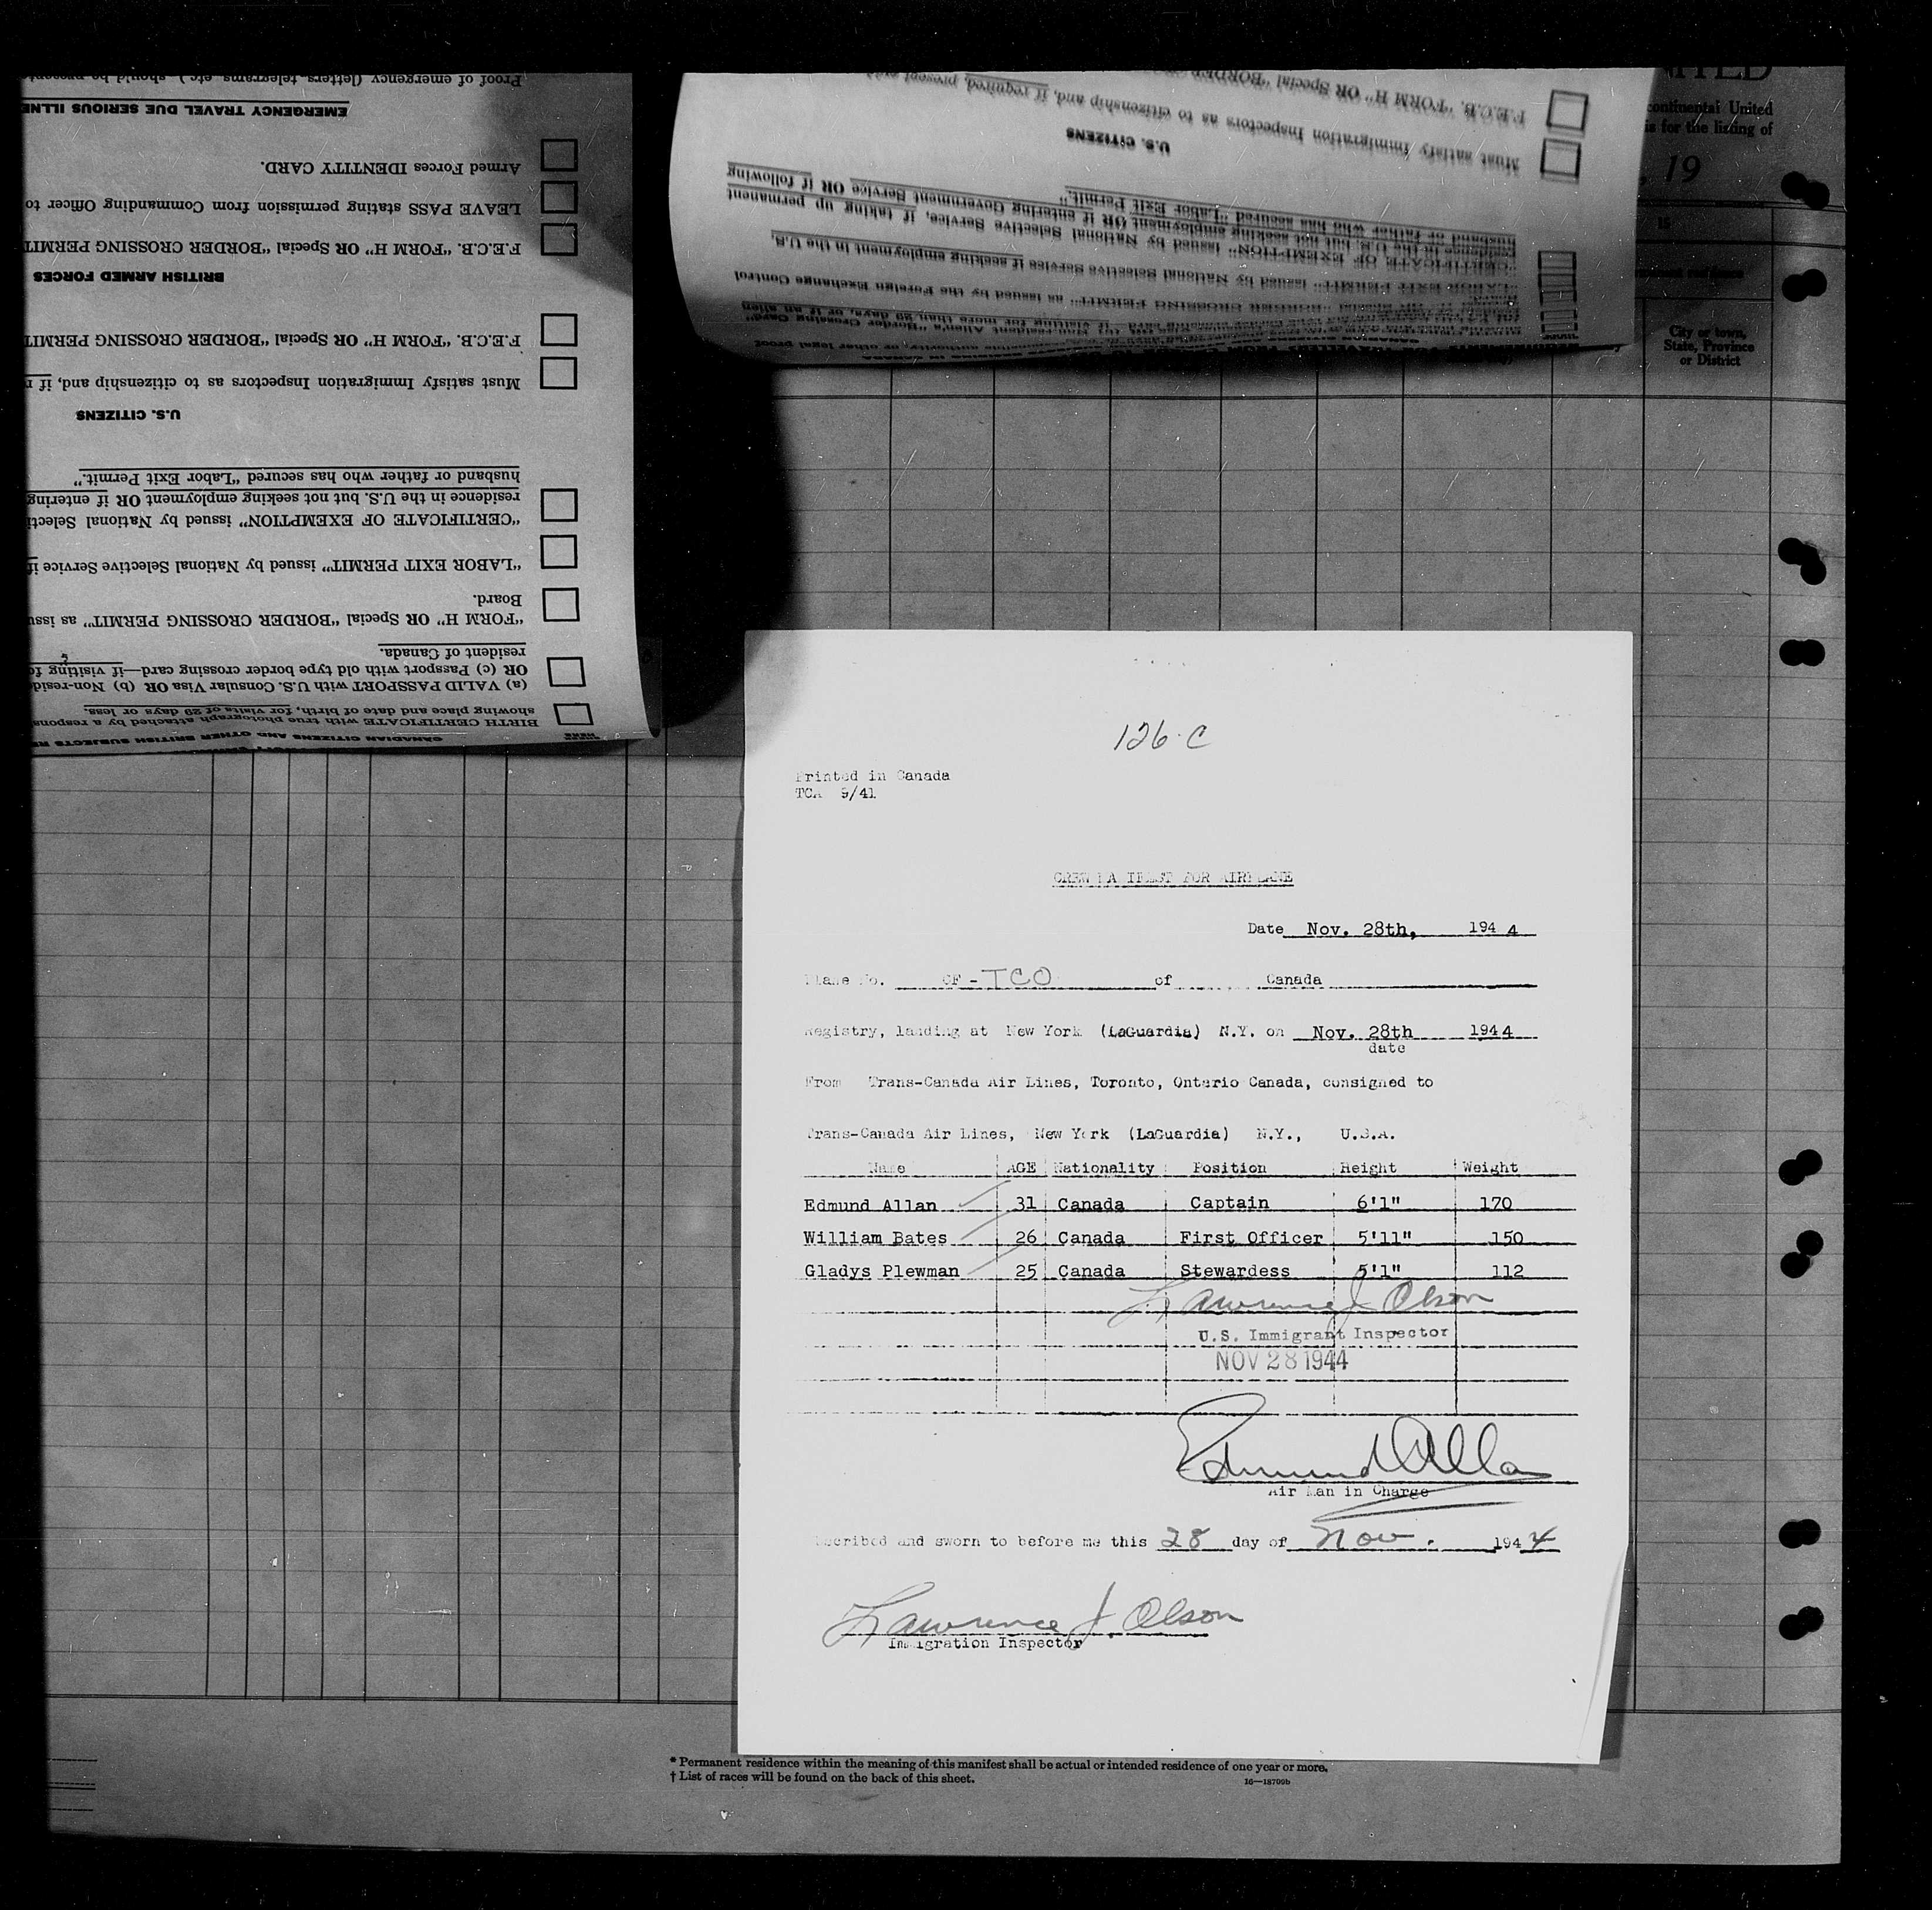 Proof of emergency (letters, telegrams, etc.) should be
EMERGENCY TRAVEL DUE SERIOUS
Armed Forces IDENTITY CARD.
LEAVE PASS stating permission from Commanding Officer to
F.E.C.B. "FORM H" OR Special "BORDER CROSSING PERMIT
BRITISH ARMED FORCES
F.E.C.B. "FORM H" OR Special "BORDER CROSSING PERMIT
Must satisfy Immigration Inspectors as to citizenship and, if
U.S. CITIZENS
husband or father who has secured "Labor Exit Permit."
residence in the U.S. but not seeking employment OR if entering
"CERTIFICATE OF EXEMPTION" issued by National
"LABOR EXIT PERMIT" issued by National Selective Service
Board.
"FORM H" OR Special "BORDER CROSSING PERMIT" as
resident of Canada.
OR (c) Passport with old type border crossing card—if visiting
(a) VALID PASSPORT with U.S. Consular Visa OR (b)
showing place and date of birth, for visits of 29 days or less.
BIRTH CERTIFICATE with true photograph attached by a
CANADIAN CITIZENS AND OTHER BRITISH SUBJECTS
F.E.C.B. "FORM H" OR Special "BORDER
Must satisfy Immigration Inspectors as to citizenship and, if required, present
U.S. CITIZENS
husband or father who has secured "Labor Exit Permit."
residence in the U.S. but not seeking employment OR if entering Government Service OR if following
"CERTIFICATE OF EXEMPTION" issued by National Selective Service, if taking up permanent
"LABOR EXIT PERMIT" issued by National Selective Service if seeking employment in the U.S.
"BORDER CROSSING PERMIT" as issued by the Foreign Exchange Control
continental United
is for the listing of
, 19
15
City or town,
State, Province
or District
126-C
Printed in Canada
TCA 9/41
CREW MANIFEST FOR AIRPLANE
Date Nov. 28th, 1944
Plane No. CF-TCO of Canada
Registry, landing at New York (LaGuardia) N.Y. on Nov. 28th 1944
date
From Trans-Canada Air Lines, Toronto, Ontario Canada, consigned to
Trans-Canada Air Lines, New York (LaGuardia) N.Y., U.S.A.
Name AGE Nationality Position Height Weight
Edmund Allan 31 Canada Captain 6'1" 170
William Bates 26 Canada First Officer 5'11" 150
Gladys Plewman 25 Canada Stewardess 5'1" 112
Lawrence J Olson
U.S. Immigrant Inspector
NOV 28 1944
Edmund Allan
Air Man in Charge
scribed and sworn to before me this 28 day of Nov. 1944
Lawrence J. Olson
Immigration Inspector
* Permanent residence within the meaning of this manifest shall be actual or intended residence of one year or more.
† List of races will be found on the back of this sheet.
16—18709b